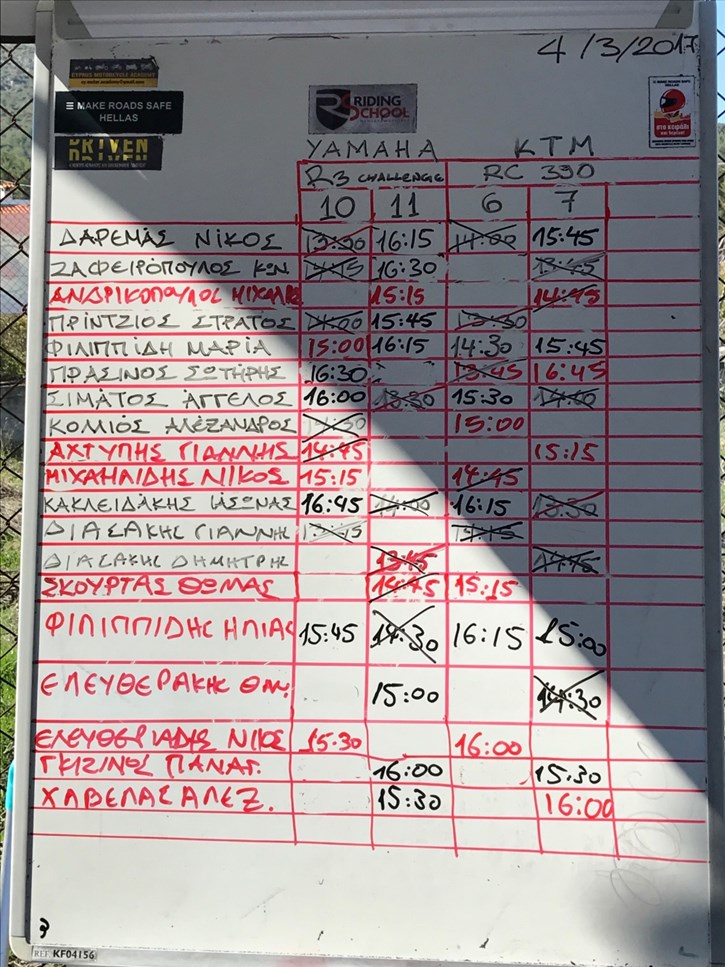 4/3/2017
CYPRUS MOTORCYCLE ACADEMY
≡ MAKE ROADS SAFE
HELLAS
DRIVEN
RIDING
SCHOOL
YAMAHA KTM
R3 CHALLENGE RC 390
10 11 6 7
ΔΑΡΕΜΑΣ ΝΙΚΟΣ 13:30 16:15 14:00 15:45
ΖΑΦΕΙΡΟΠΟΥΛΟΣ ΚΩΝ 16:30 13:45
ΑΝΔΡΙΚΟΠΟΥΛΟΣ ΜΙΧΑΛΗΣ 15:15 14:45
ΠΡΙΝΤΖΙΟΣ ΣΤΡΑΤΟΣ 14:00 15:45 13:30
ΦΙΛΙΠΠΙΔΗ ΜΑΡΙΑ 15:00 16:15 14:30 15:45
ΠΡΑΣΙΝΟΣ ΣΩΤΗΡΗΣ 16:30 13:45 16:45
ΣΙΜΑΤΟΣ ΑΓΓΕΛΟΣ 16:00 13:30 15:30 14:00
ΚΟΛΙΟΣ ΑΛΕΞΑΝΔΡΟΣ 14:30 15:00
ΑΧΤΥΠΗΣ ΓΙΑΝΝΗΣ 14:45 15:15
ΜΙΧΑΗΛΙΔΗΣ ΝΙΚΟΣ 15:15 14:45
ΚΑΚΛΕΙΔΑΚΗΣ ΙΑΣΩΝΑΣ 16:45 14:00 16:15 13:30
ΔΙΑΣΑΚΗΣ ΓΙΑΝΝΗ
ΔΙΑΣΑΚΗΣ ΔΗΜΗΤΡΗΣ 13:45
ΣΚΟΥΡΤΑΣ ΘΩΜΑΣ 14:45 15:15
ΦΙΛΙΠΠΙΔΗΣ ΗΛΙΑΣ 15:45 14:30 16:15 15:00
ΕΛΕΥΘΕΡΑΚΗΣ ΘΑΝ. 15:00 14:30
ΕΛΕΥΘΕΡΙΑΔΗΣ ΝΙΚΟΣ 15.30 16:00
ΓΚΙΖΙΝΟΣ ΠΑΝΑΓ. 16:00 15.30
ΧΑΒΕΛΑΣ ΑΛΕΞ. 15:30 16:00
REF. KF04156